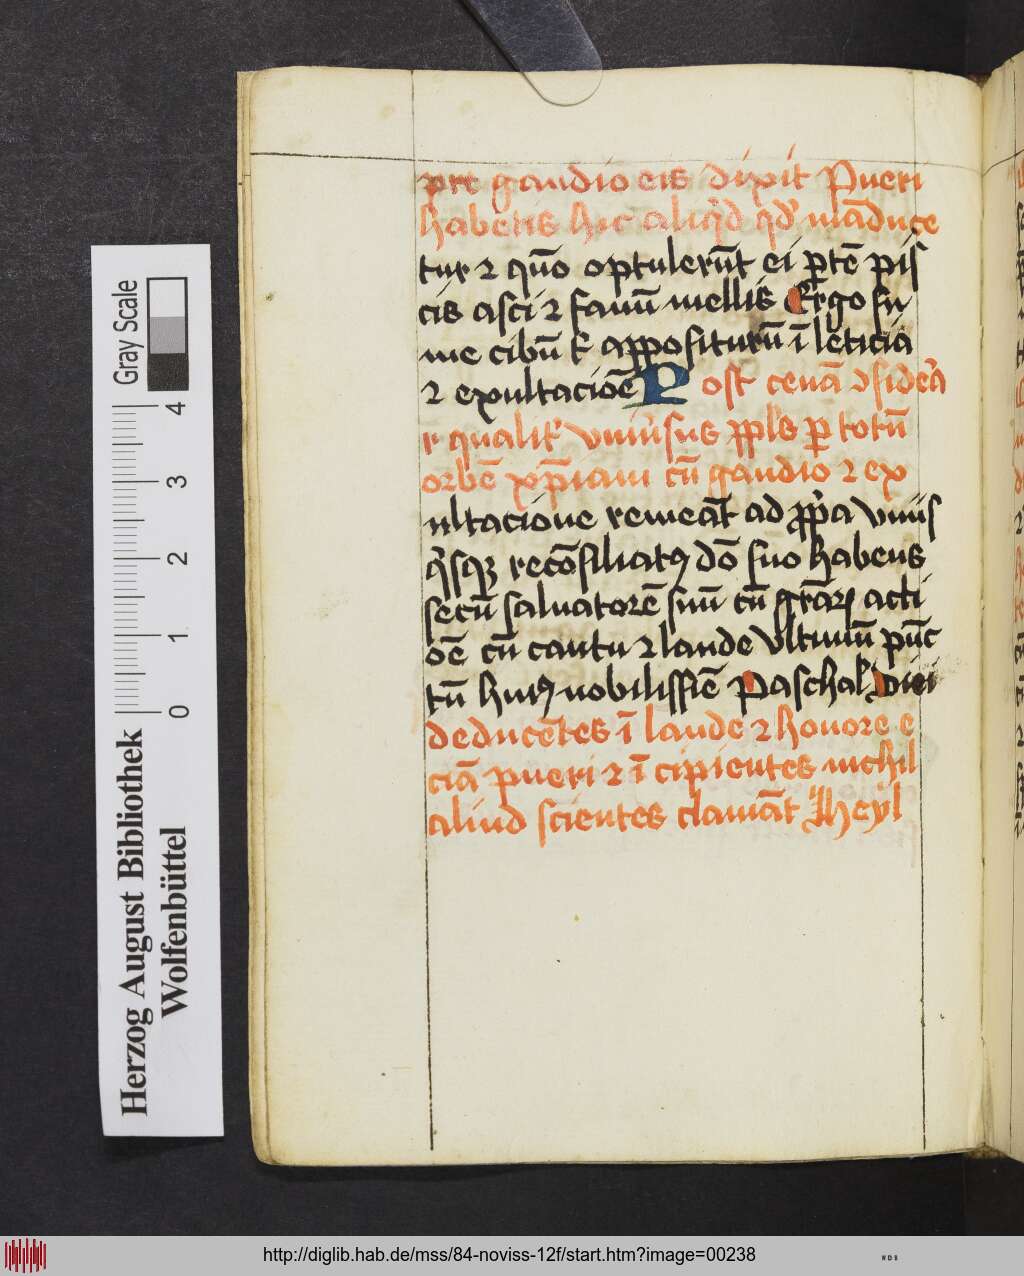 pre gaudio eis dixit Pueri
habetis hic aliqͥd qd' māduce
tur ⁊ quō optulerūt ei ꝑtē pis
cis assi ⁊ fauū mellis Ergo su
me cibū appositurū ī leticia
⁊ exultacioē Post cenā ↄsidera
r qualit' vniu'sus ppl's ꝑ totū
orbē xp̄iani cū gaudio ⁊ ex
ultacione remeāt ad ꝓp'a vnus
qͥsqꝫ recōsiliatꝰ dō suo habens
secū saluatorē suū cū gr̄aꝝ acti
oē cū cantu ⁊ laude vltimū pūc
tū huiꝰ nobilissie Paschal' diei
deducētes ī laude ⁊ honore e
ciā pueri ⁊ īcipientes nichil
aliud scientes clamāt Jheyl
Herzog August Bibliothek
Wolfenbüttel
Gray Scale
0 1 2 3 4
http://diglib.hab.de/mss/84-noviss-12f/start.htm?image=00238